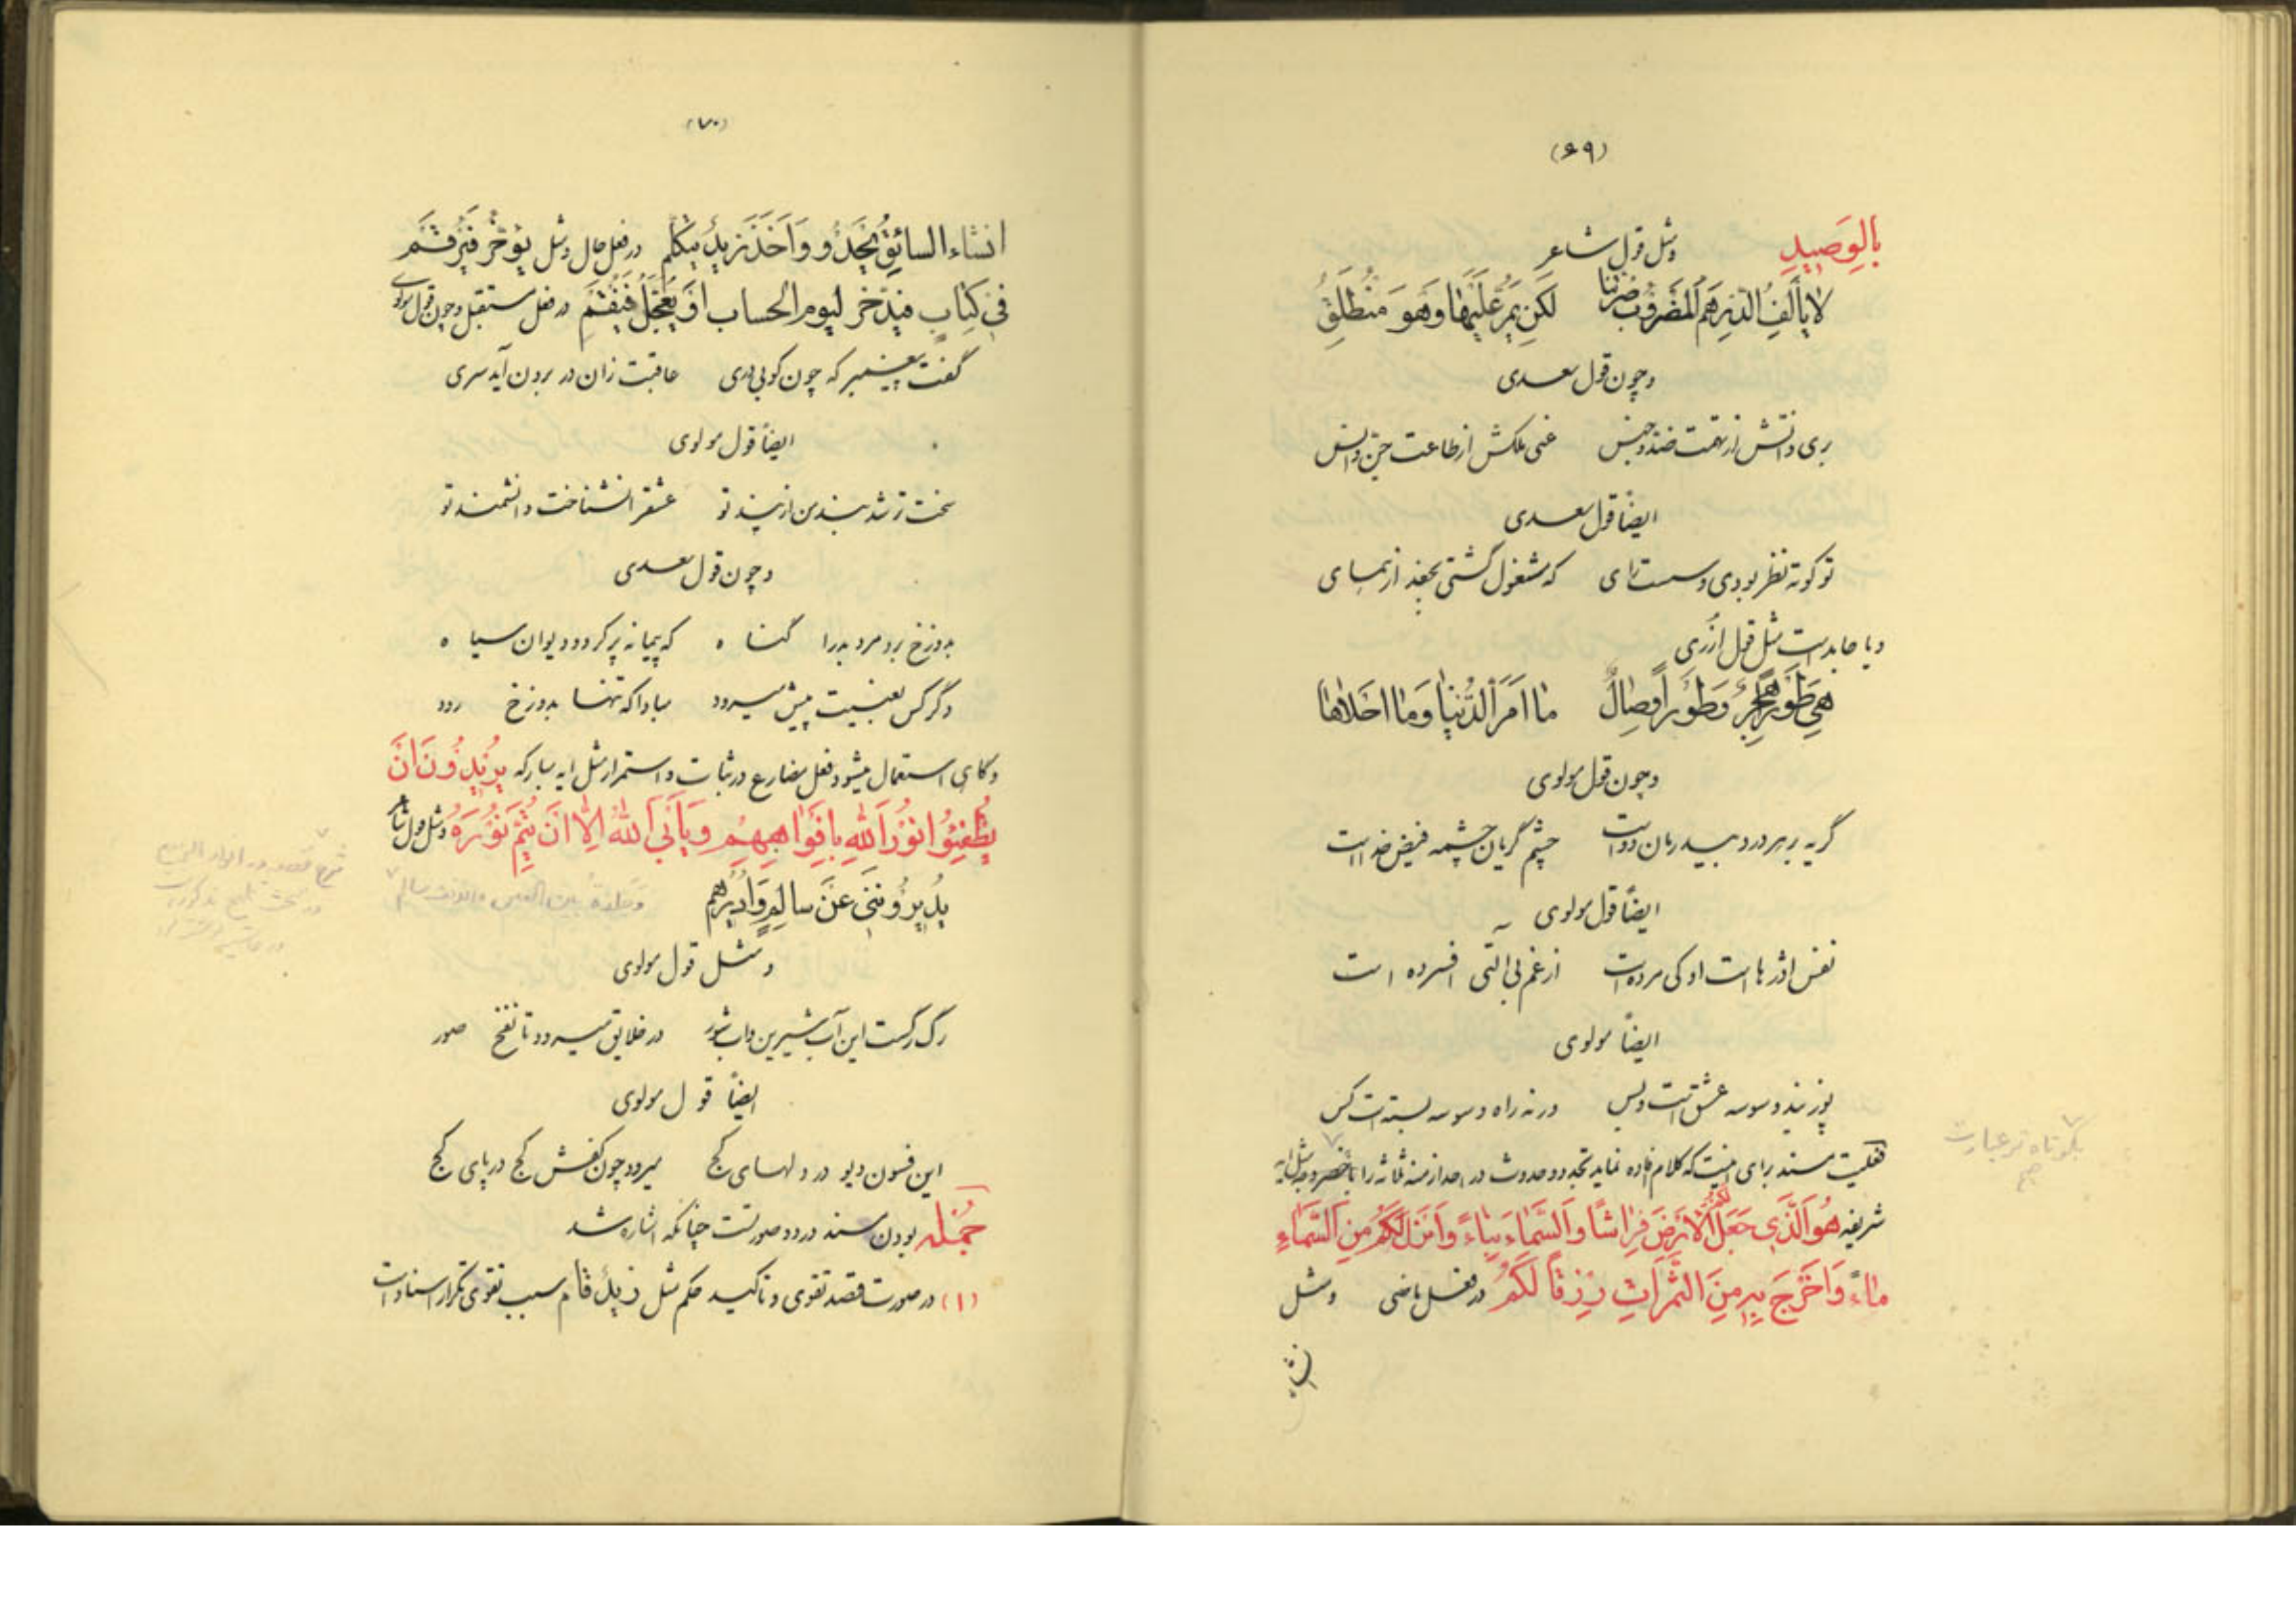 (۶۹)
بِالوَصِیدِ ومثل قول شاعر
لا یَألَفُ الدِّرهَمُ المَضروبُ صُرَّتَنا لکِن یَمُرُّ عَلَیها وَهُوَ مُنطَلِقُ
وچون قول سعدی
بری ذاتش از تهمت ضد و جنس غنی ملکش از طاعت جن و انس
ایضاً قول سعدی
تو کوته نظر بودی و سست رای که مشغول گشتی بجغد از همای
ویا جامد است مثل قول ازری
هِیَ طَوراً هَجرٌ وَطَوراً وِصالٌ ما اَمَرَّ الدُّنیا وَما اَحلاها
وچون قول مولوی
گریه بر هر درد بیدرمان دواست چشم گریان چشمه فیض خداست
ایضاً قول مولوی
نفس اژدرها است او کی مرده است از غم بی آلتی افسرده است
ایضاً مولوی
پوزبند وسوسه عشق است وبس ورنه راه وسوسه بسته است کس
فعلیت مسند برای اینست که کلام افاده نماید تجدد وحدوث در احد ازمنه ثلاثه را با اخصر وجه مثل آیه
شریفه هُوَ الَّذی جَعَلَ لَکُمُ الاَرضَ فِراشاً وَالسَّماءَ بِناءً وَاَنزَلَ لَکُم مِنَ السَّماءِ
ماءً وَاَخرَجَ بِهِ مِنَ الثَّمَراتِ رِزقاً لَکُم در فعل ماضی ومثل
انشاء
بکوتاه تر عبارت
(۷۰)
انشاء السائِقُ یَحدُو وَاَخَذَ زَیدٌ یَتَکَلَّم در فعل حال ومثل یُؤَخَّر فَیُرقَم
فی کِتابٍ فَیُدَّخَر لیوم الحساب اَو یُعَجَّل فَیُنقَم در فعل مستقبل وچون قول مولوی
گفت پیغمبر که چون کوبی دری عاقبت زان در برون آید سری
ایضاً قول مولوی
سخت تر شد بند من از پند تو عشق را نشناخت دانشمند تو
وچون قول سعدی
بدوزخ برد مرد بد را گناه که پیمانه پر کرد و دیوان سیاه
دگر کس بغیبت پیش میرود مبادا که تنها بدوزخ رود
وگاهی استعمال میشود فعل مضارع در ثبات واستمرار مثل آیه مبارکه یُریدُونَ اَن
یُطفِئُوا نُورَ اللهِ بِاَفواهِهِم وَیَأبَی اللهُ اِلاّ اَن یُتِمَّ نُورَهُ ومثل قول شاعر
یُدیرُونَنی عَن سالِمٍ وَاُدیرُهُم وَجِلدَةُ بین العین والانف سالم
ومثل قول مولوی
رگ رگست این آب شیرین وآب شور در خلایق میرود تا نفخ صور
ایضاً قول مولوی
این فسون دیو در دلهای کج میرود چون کفش کج در پای کج
جُمله بودن مسند در دو صورتست چنانکه اشاره شد
(۱) در صورت قصد تقوی وتاکید حکم مثل زیدٌ قام سبب تقوی تکرار اسناد است